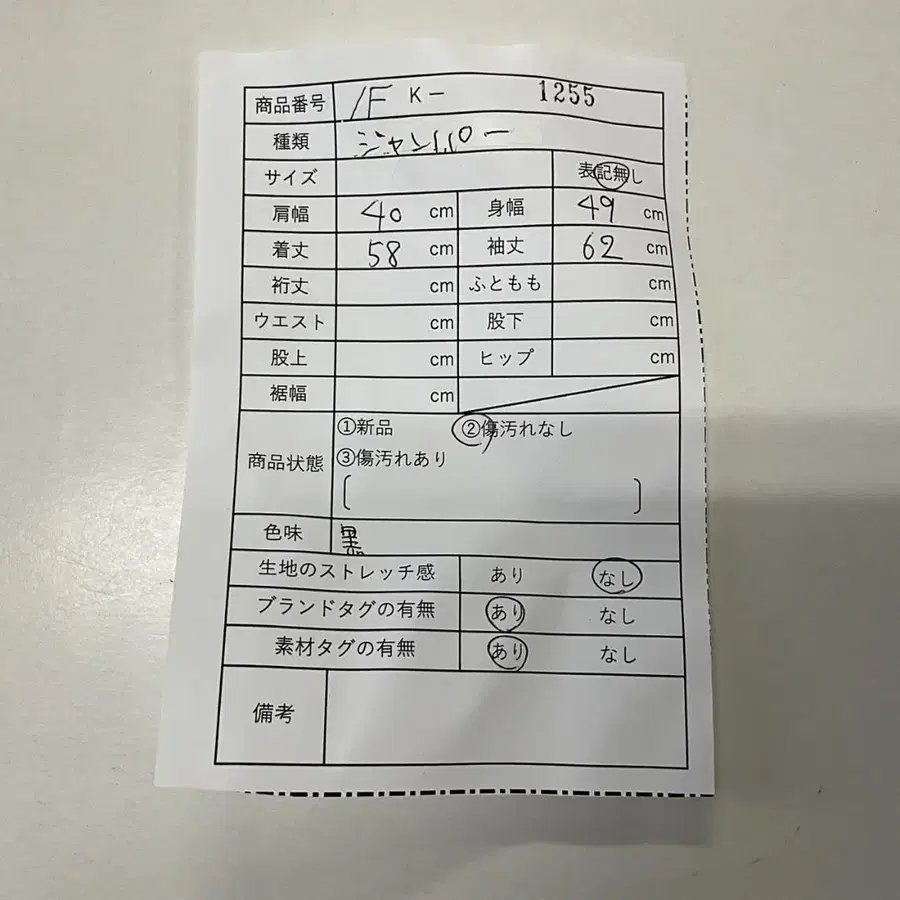 商品番号 1F K- 1255
種類 ジャンパー
サイズ 表記無し
肩幅 40 cm 身幅 49 cm
着丈 58 cm 袖丈 62 cm
裄丈 cm ふともも cm
ウエスト cm 股下 cm
股上 cm ヒップ cm
裾幅 cm
商品状態 ①新品 ②傷汚れなし
③傷汚れあり
[ ]
色味 黒
生地のストレッチ感 あり なし
ブランドタグの有無 あり なし
素材タグの有無 あり なし
備考